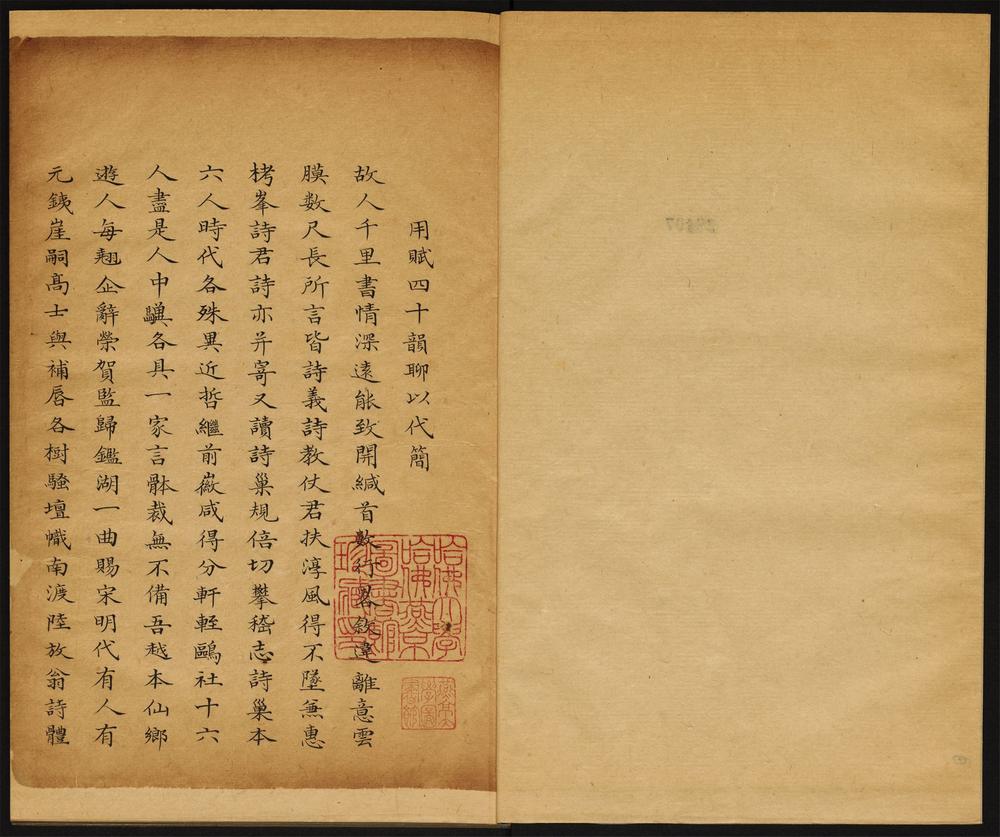 用賦四十韻聊以代簡
故人千里書情深遠能致開緘首數行畧敘違離意雲
膜數尺長所言皆詩義詩教仗君扶淳風得不墜兼惠
栲峯詩君詩亦并寄又讀詩巢規倍切攀嵇志詩巢本
六人時代各殊異近哲繼前嶶咸得分軒輊鷗社十六
人盡是人中驥各具一家言骵裁無不備吾越本仙鄉
遊人每翹企辭榮賀監歸鑑湖一曲賜宋明代有人有
元銕崖嗣高士與補唇各樹騷壇幟南渡陸放翁詩體
哈佛大學
哈佛燕京
圖書館
珍藏印